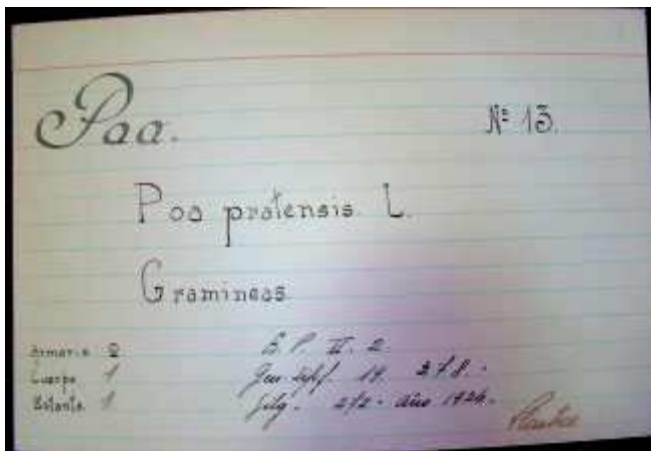 Poa.
Nº 13.
Poa pratensis L.
Gramineas
Armario 2
Cuerpo 1
Estante 1
B. P. II. 2.
19. 378.-
272- año 1924.